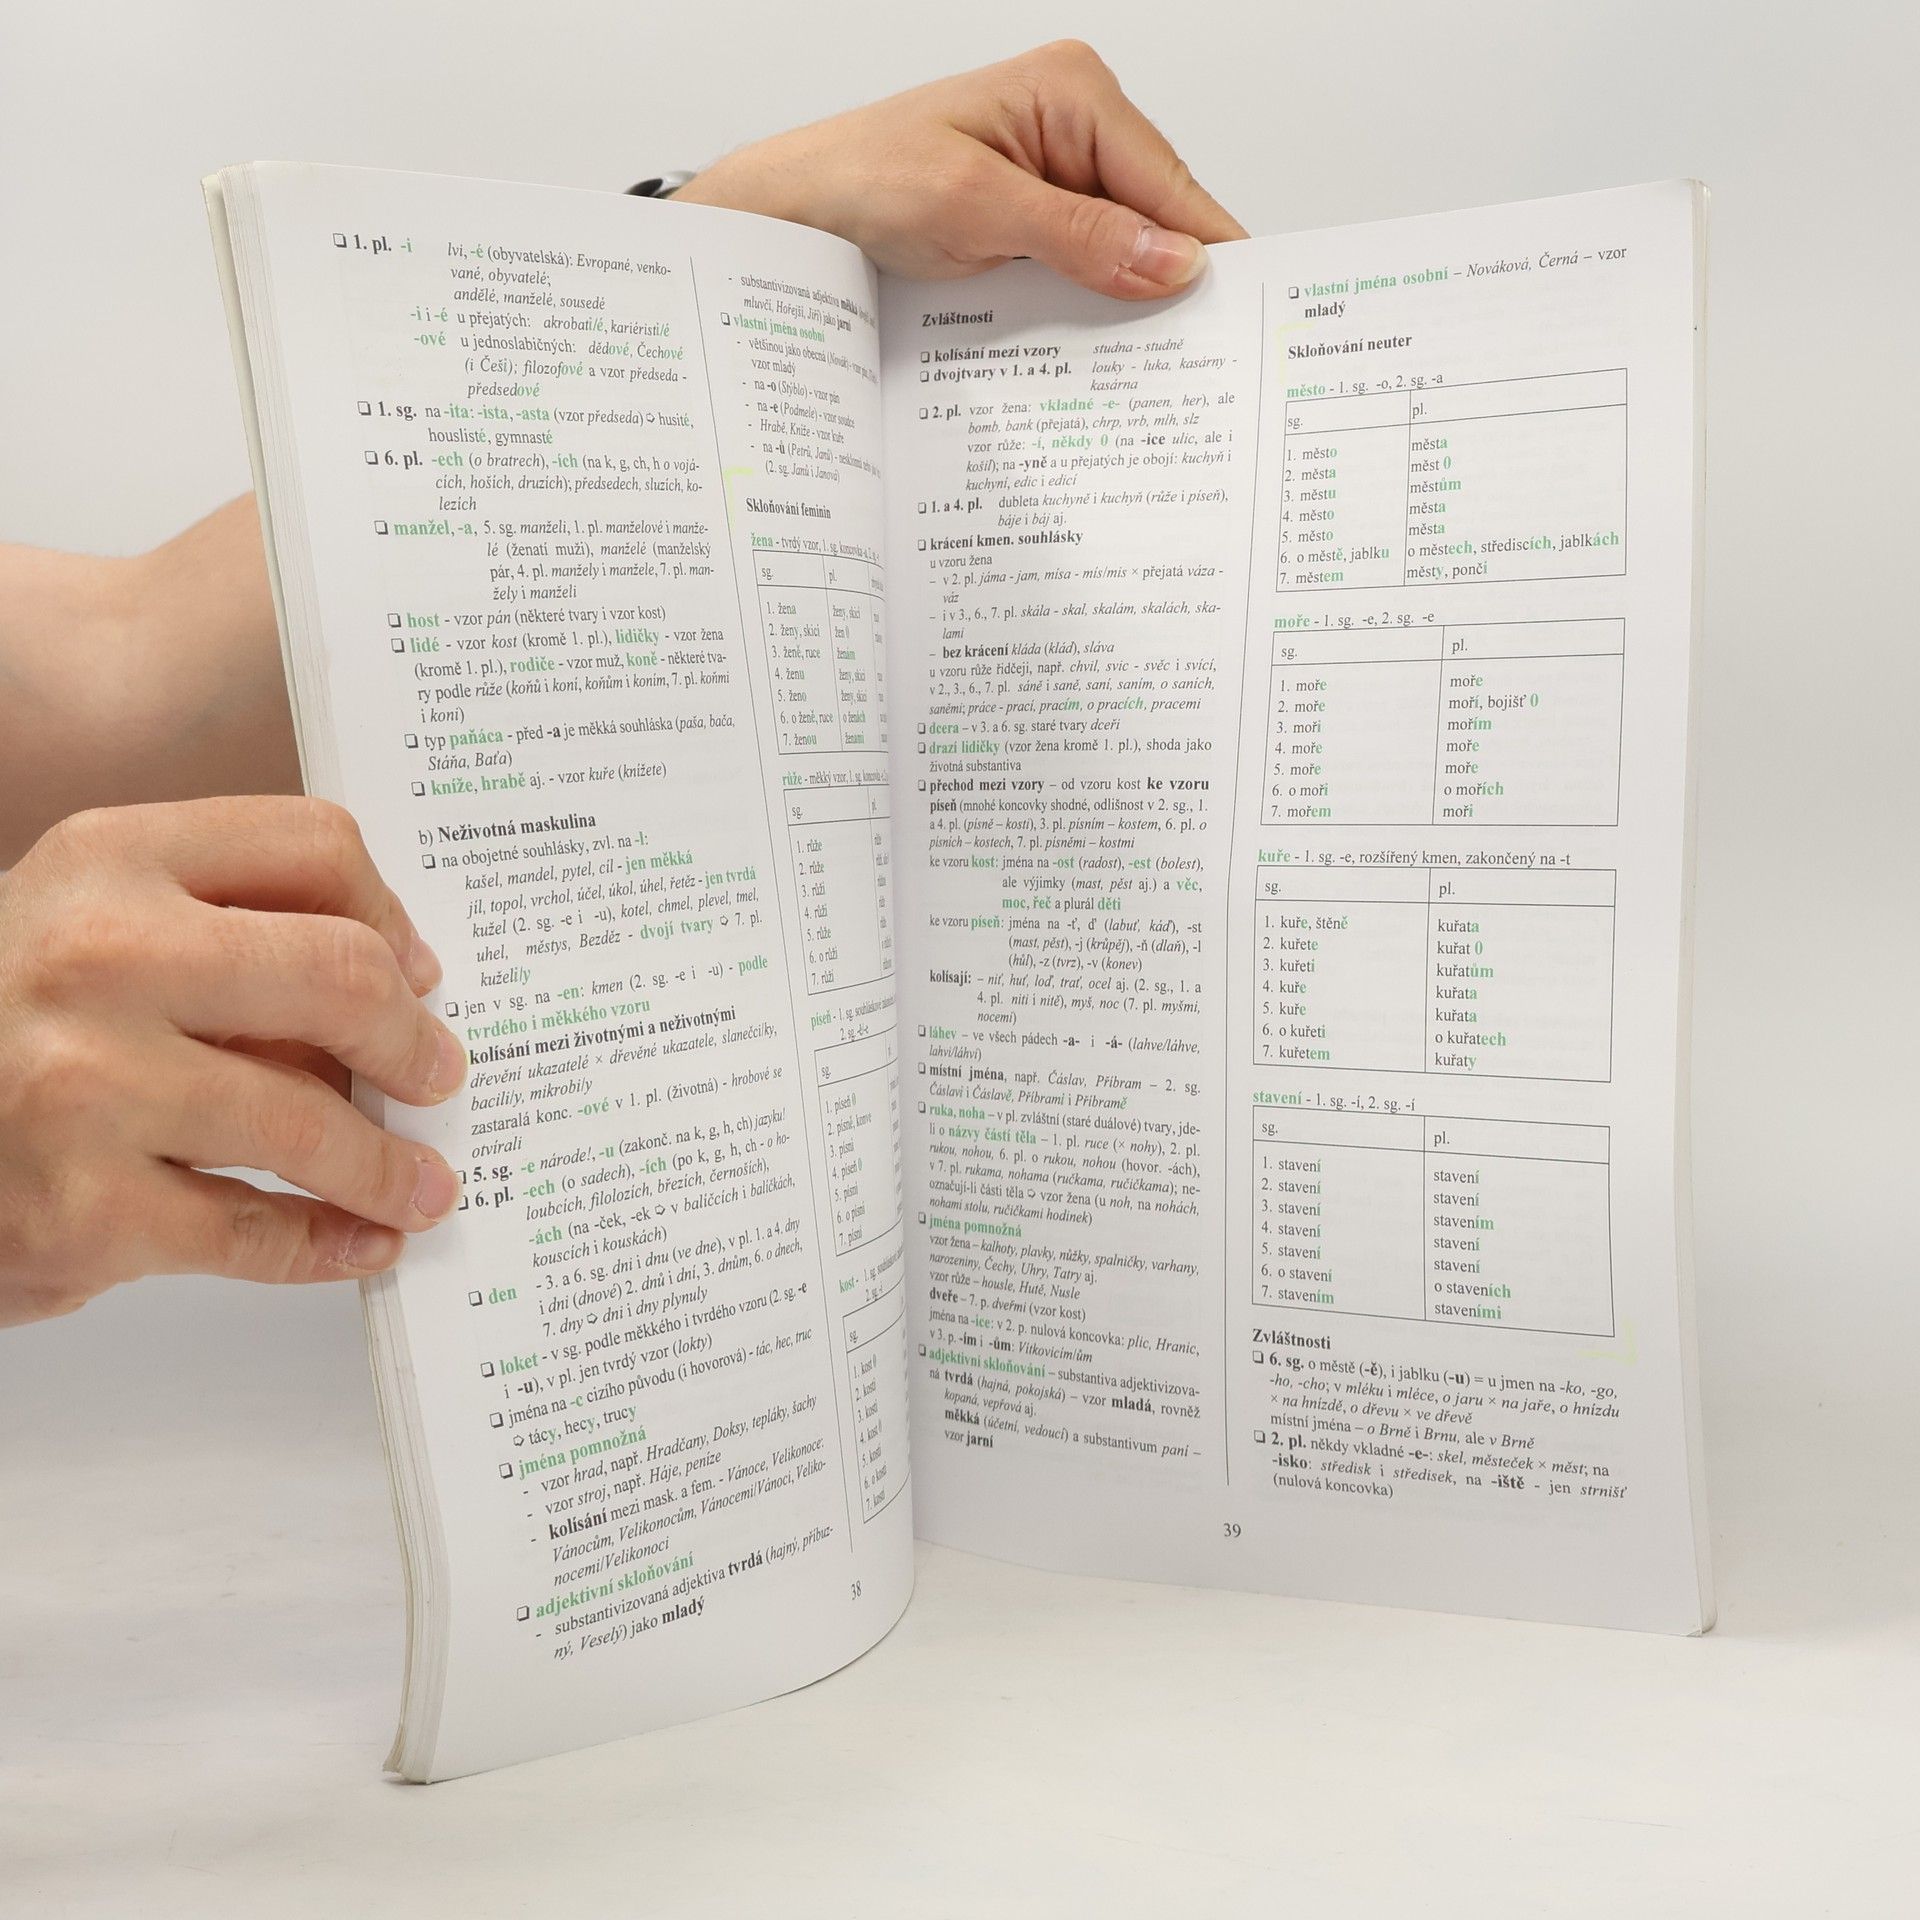 ❏ 1. pl. -i lvi, -é (obyvatelská): Evropané, venko-
vané, obyvatelé;
andělé, manželé, sousedé
-i i -é u přejatých: akrobati/é, kariéristi/é
-ové u jednoslabičných: dědové, Čechové
(i Češi); filozofové a vzor předseda -
předsedové
❏ 1. sg. na -ita: -ista, -asta (vzor předseda) ➪ husité,
houslisté, gymnasté
❏ 6. pl. -ech (o bratrech), -ích (na k, g, ch, h o vojá-
cích, hoších, druzích); předsedech, sluzích, ko-
lezích
❏ manžel, -a, 5. sg. manželi, 1. pl. manželové i manže-
lé (ženatí muži), manželé (manželský
pár, 4. pl. manžely i manžele, 7. pl. man-
žely i manželi
❏ host - vzor pán (některé tvary i vzor kost)
❏ lidé - vzor kost (kromě 1. pl.), lidičky - vzor žena
(kromě 1. pl.), rodiče - vzor muž, koně - některé tva-
ry podle růže (koňů i koní, koňům i koním, 7. pl. koňmi
i koni)
❏ typ paňáca - před -a je měkká souhláska (paša, bača,
Stáňa, Baťa)
❏ kníže, hrabě aj. - vzor kuře (knížete)
b) Neživotná maskulina
❏ na obojetné souhlásky, zvl. na -l:
kašel, mandel, pytel, cíl - jen měkká
jíl, topol, vrchol, účel, úkol, úhel, řetěz - jen tvrdá
kužel (2. sg. -e i -u), kotel, chmel, plevel, tmel,
uhel, městys, Bezděz - dvojí tvary ➪ 7. pl.
kuželi/y
❏ jen v sg. na -en: kmen (2. sg. -e i -u) - podle
tvrdého i měkkého vzoru
kolísání mezi životnými a neživotnými
dřevění ukazatelé × dřevěné ukazatele, slanečci/ky,
bacili/y, mikrobi/y
zastaralá konc. -ové v 1. pl. (životná) - hrobové se
otvírali
❏ 5. sg. -e národe!, -u (zakonč. na k, g, h, ch) jazyku!
❏ 6. pl. -ech (o sadech), -ích (po k, g, h, ch - o ho-
loubcích, filolozích, březích, černoších),
-ách (na -ček, -ek ➪ v balíčcích i balíčkách,
kouscích i kouskách)
❏ den - 3. a 6. sg. dni i dnu (ve dne), v pl. 1. a 4. dny
i dni (dnové) 2. dnů i dní, 3. dnům, 6. o dnech,
7. dny ➪ dni i dny plynuly
❏ loket - v sg. podle měkkého i tvrdého vzoru (2. sg. -e
i -u), v pl. jen tvrdý vzor (lokty)
❏ jména na -c cizího původu (i hovorová) - tác, hec, truc
➪ tácy, hecy, trucy
❏ jména pomnožná
- vzor hrad, např. Hradčany, Doksy, tepláky, šachy
- vzor stroj, např. Háje, peníze
- kolísání mezi mask. a fem. - Vánoce, Velikonoce:
Vánocům, Velikonocům, Vánocemi/Vánoci, Veliko-
nocemi/Velikonoci
❏ adjektivní skloňování
- substantivizovaná adjektiva tvrdá (hajný, příbuz-
ný, Veselý) jako mladý
- substantivizovaná adjektiva měkká
mluvčí, Hořejší, Jiří) jako jarní
❏ vlastní jména osobní
- většinou jako obecná (Novák) - vzor
vzor mladý
- na -o (Stýblo) - vzor pán
- na -e (Podmele) - vzor soudce
- Hrabě, Kníže - vzor kuře
- na -ů (Petrů, Janů) -
(2. sg. Janů i Janová)
Skloňování feminin
žena - tvrdý vzor, 1. sg. koncovka -a, 2. sg.
sg. pl.
1. žena ženy, skici
2. ženy, skici žen 0
3. ženě, ruce ženám
4. ženu ženy, skici
5. ženo ženy, skici
6. o ženě, ruce o ženách
7. ženou ženami
růže - měkký vzor, 1. sg. koncovka
sg. pl.
1. růže
2. růže
3. růži
4. růži
5. růže
6. o růži
7. růží
píseň - 1. sg. souhláskové
2. sg.
sg.
1. píseň 0
2. písně, konve
3. písni
4. píseň 0
5. písni
6. o písni
7. písní
kost - 1. sg.
2. sg. -i
sg.
1. kost 0
2. kosti
3. kosti
4. kost 0
5. kosti
6. o kosti
7. kostí
38
Zvláštnosti
❏ kolísání mezi vzory studna - studně
❏ dvojtvary v 1. a 4. pl. louky - luka, kasárny -
kasárna
❏ 2. pl. vzor žena: vkladné -e- (panen, her), ale
bomb, bank (přejatá), chrp, vrb, mlh, slz
vzor růže: -í, někdy 0 (na -ice ulic, ale i
košil); na -yně a u přejatých je obojí: kuchyň i
kuchyní, edic i edicí
❏ 1. a 4. pl. dubleta kuchyně i kuchyň (růže i píseň),
báje i báj aj.
❏ krácení kmen. souhlásky
u vzoru žena
– v 2. pl. jáma - jam, mísa - mís/mis × přejatá váza -
váz
– i v 3., 6., 7. pl. skála - skal, skalám, skalách, ska-
lami
– bez krácení kláda (klád), sláva
u vzoru růže řidčeji, např. chvil, svic - svěc i svící,
v 2., 3., 6., 7. pl. sáně i saně, saní, saním, o saních,
saněmi; práce - prací, pracím, o pracích, pracemi
❏ dcera – v 3. a 6. sg. staré tvary dceři
❏ drazí lidičky (vzor žena kromě 1. pl.), shoda jako
životná substantiva
❏ přechod mezi vzory – od vzoru kost ke vzoru
píseň (mnohé koncovky shodné, odlišnost v 2. sg., 1.
a 4. pl. (písně – kosti), 3. pl. písním – kostem, 6. pl. o
písních – kostech, 7. pl. písněmi – kostmi
ke vzoru kost: jména na -ost (radost), -est (bolest),
ale výjimky (mast, pěst aj.) a věc,
moc, řeč a plurál děti
ke vzoru píseň: jména na -ť, ď (labuť, káď), -st
(mast, pěst), -j (krůpěj), -ň (dlaň), -l
(hůl), -z (tvrz), -v (konev)
kolísají: – niť, huť, loď, trať, ocel aj. (2. sg., 1. a
4. pl. niti i nitě), myš, noc (7. pl. myšmi,
nocemi)
❏ láhev – ve všech pádech -a- i -á- (lahve/láhve,
lahvi/láhvi)
❏ místní jména, např. Čáslav, Příbram – 2. sg.
Čáslavi i Čáslavě, Příbrami i Příbramě
❏ ruka, noha – v pl. zvláštní (staré duálové) tvary, jde-
li o názvy částí těla – 1. pl. ruce (× nohy), 2. pl.
rukou, nohou, 6. pl. o rukou, nohou (hovor. -ách),
v 7. pl. rukama, nohama (ručkama, ručičkama); ne-
označují-li části těla ➪ vzor žena (u noh, na nohách,
nohami stolu, ručičkami hodinek)
❏ jména pomnožná
vzor žena – kalhoty, plavky, nůžky, spalničky, varhany,
narozeniny, Čechy, Uhry, Tatry aj.
vzor růže – housle, Hutě, Nusle
dveře – 7. p. dveřmi (vzor kost)
jména na -ice: v 2. p. nulová koncovka: plic, Hranic,
v 3. p. -ím i -ům: Vítkovicím/ům
❏ adjektivní skloňování – substantiva adjektivizova-
ná tvrdá (hajná, pokojská) – vzor mladá, rovněž
kopaná, vepřová aj.
měkká (účetní, vedoucí) a substantivum paní –
vzor jarní
❏ vlastní jména osobní – Nováková, Černá – vzor
mladý
Skloňování neuter
město - 1. sg. -o, 2. sg. -a
sg. pl.
1. město města
2. města měst 0
3. městu městům
4. město města
5. město města
6. o městě, jablku o městech, střediscích, jablkách
7. městem městy, pončí
moře - 1. sg. -e, 2. sg. -e
sg. pl.
1. moře moře
2. moře moří, bojišť 0
3. moři mořím
4. moře moře
5. moře moře
6. o moři o mořích
7. mořem moři
kuře - 1. sg. -e, rozšířený kmen, zakončený na -t
sg. pl.
1. kuře, štěně kuřata
2. kuřete kuřat 0
3. kuřeti kuřatům
4. kuře kuřata
5. kuře kuřata
6. o kuřeti o kuřatech
7. kuřetem kuřaty
stavení - 1. sg. -í, 2. sg. -í
sg. pl.
1. stavení stavení
2. stavení stavení
3. stavení stavením
4. stavení stavení
5. stavení stavení
6. o stavení o staveních
7. stavením staveními
Zvláštnosti
❏ 6. sg. o městě (-ě), i jablku (-u) = u jmen na -ko, -go,
-ho, -cho; v mléku i mléce, o jaru × na jaře, o hnízdu
× na hnízdě, o dřevu × ve dřevě
místní jména – o Brně i Brnu, ale v Brně
❏ 2. pl. někdy vkladné -e-: skel, městeček × měst; na
-isko: středisk i středisek, na -iště - jen strnišť
(nulová koncovka)
39